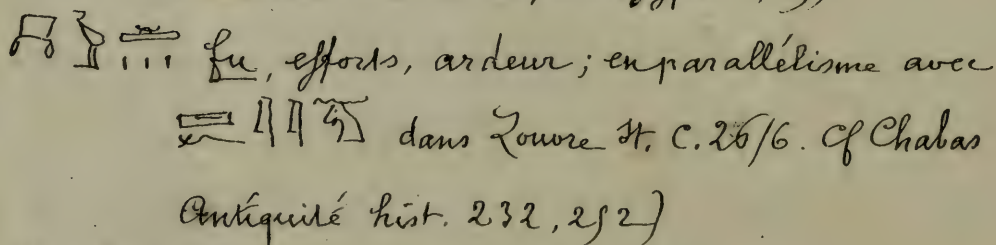 fu, efforts, ardeur; en parallélisme avec
dans Louvre St. C. 26/6. Cf Chabas
Antiquité hist. 232, 252)